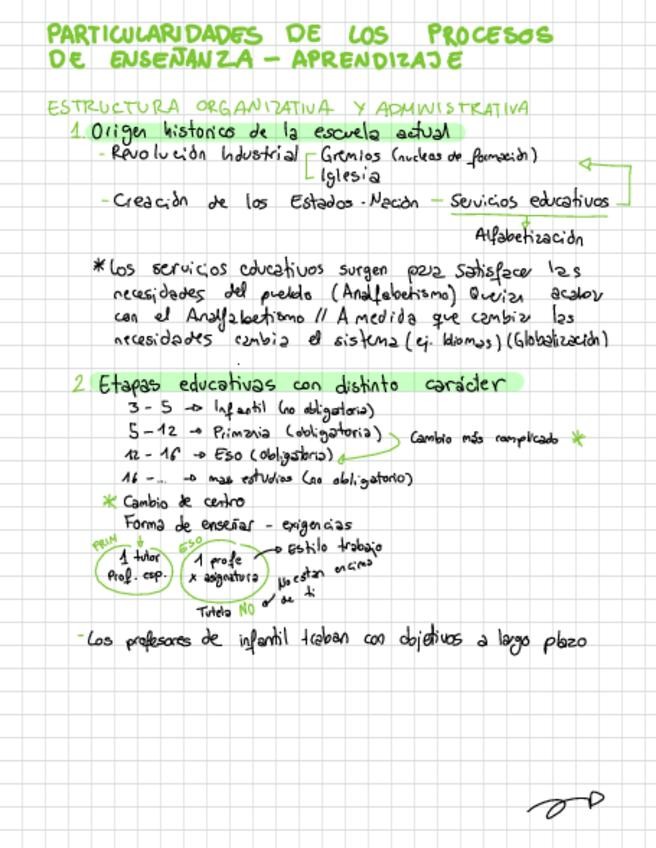 PARTICULARIDADES DE LOS PROCESOS
DE ENSEÑANZA - APRENDIZAJE
ESTRUCTURA ORGANIZATIVA Y ADMINISTRATIVA
1. Origen historico de la escuela actual
- Revolución Industrial Gremios (nucleos de formación)
Iglesia
- Creación de los Estados-Nación - Servicios educativos
Alfabetización
* Los servicios educativos surgen para satisfacer las
necesidades del pueblo (Analfabetismo) Querian acabar
con el Analfabetismo // A medida que cambian las
necesidades cambia el sistema (ej. Idiomas) (Globalización)
2 Etapas educativas con distinto carácter
3 - 5 → Infantil (no obligatoria)
5 - 12 → Primaria (obligatoria)
Cambio más complicado *
12 - 16 → Eso (obligatoria)
16 - ... → mas estudios (no obligatorio)
* Cambio de centro
Forma de enseñar - exigencias
PRIM
1 tutor
Prof. esp.
ESO
1 profe
x asignatura
→ Estilo trabajo
No estan encima
de ti
Tutela NO
- Los profesores de infantil traban con objetivos a largo plazo